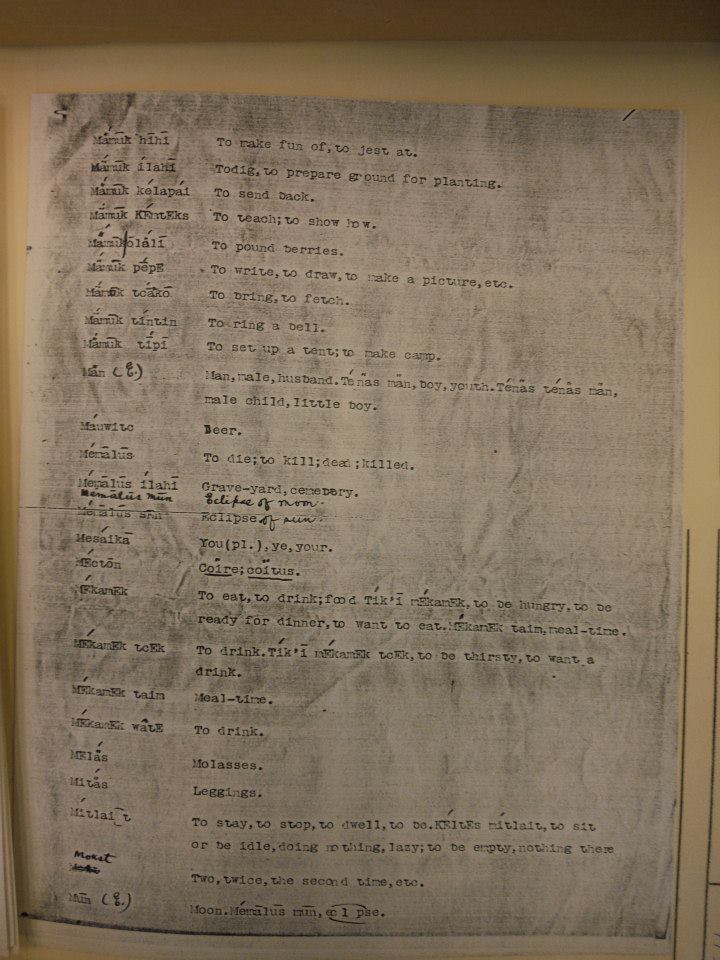 Mámūk hīhī To make fun of, to jest at.
Mámūk ílahī Todig, to prepare ground for planting.
Mámūk kélapái To send back.
Mámūk KEmtEks To teach; to show how.
Mámūk ólálī To pound berries.
Mámūk pépE To write, to draw, to make a picture, etc.
Mámūk tcákō To bring, to fetch.
Mámūk tíntin To ring a bell.
Mámūk típī To set up a tent; to make camp.
Män (E.) Man, male, husband. Ténäs män, boy, youth. Ténäs ténäs män,
male child, little boy.
Máuwitc Deer.
Mémālūs To die; to kill; dead; killed.
Mémālūs ílahī Grave-yard, cemetary.
Memālūs mūn Eclipse of moon.
Mémālūs sūn Eclipse of sun.
Mesáika You (pl.), ye, your.
MEctōn Coïre; coïtus.
MÉkamEk To eat, to drink; food Tík'ī mÉkamEk, to be hungry, to be
ready for dinner, to want to eat. MÉkamEk taim, meal-time.
MÉkamEk tcEk To drink. Tík'ī mÉkamEk tcEk, to be thirsty, to want a
drink.
MÉkamEk taim Meal-time.
MÉkamEk wätE To drink.
MElás Molasses.
Mitás Leggings.
Mítlait To stay, to stop, to dwell, to be. KÉltEs mítlait, to sit
or be idle, doing nothing, lazy; to be empty, nothing there
Mokst Two, twice, the second time, etc.
Mūn (E.) Moon. Mémālūs mūn, eclipse.